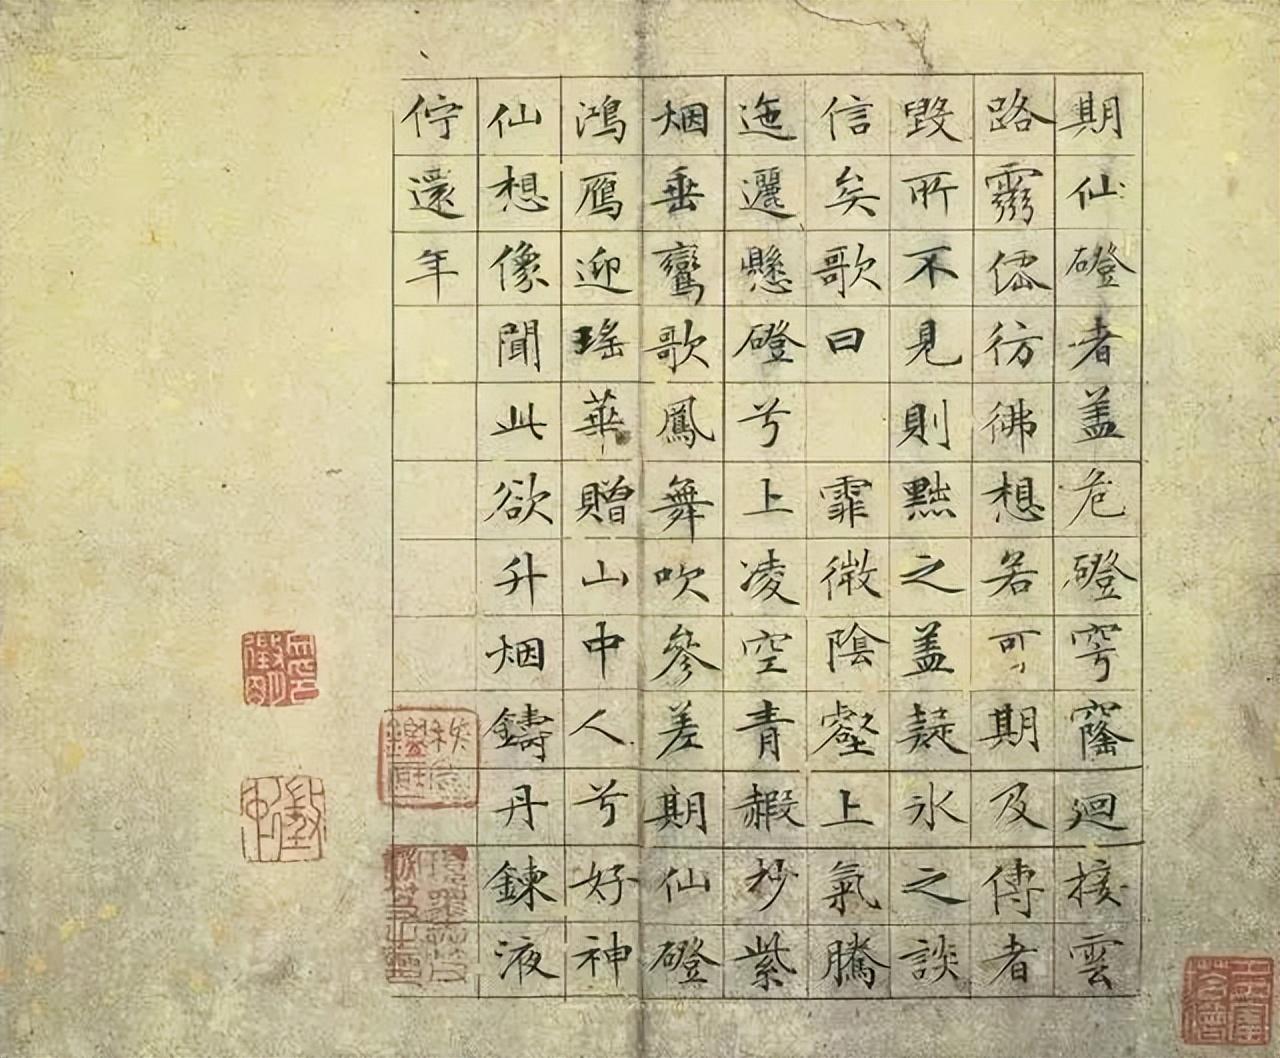 期仙磴者盖危磴穹窿迴接雲
路靈僊彷彿想若可期及傳者
毀所不見則黜之盖疑氷之談
信矣歌曰 霏微陰壑上氣騰
迤邐懸磴兮上凌空青赮杪紫
烟垂鸞歌鳳舞吹參差期仙磴
鴻鴈迎瑶華贈山中人兮好神
仙想像聞此欲升烟鑄丹鍊液
佇還年